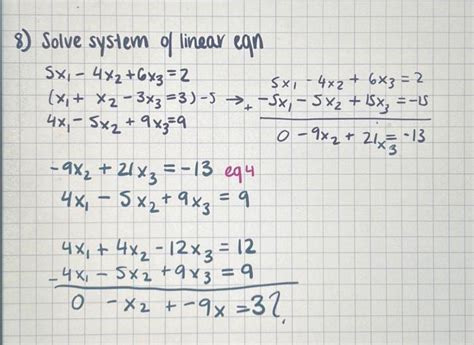 8) Solve system of linear eqn
5x₁ - 4x₂ + 6x₃ = 2
(x₁ + x₂ - 3x₃ = 3) -5 →
4x₁ - 5x₂ + 9x₃ = 9
5x₁ - 4x₂ + 6x₃ = 2
+ -5x₁ - 5x₂ + 15x₃ = -15
0 - 9x₂ + 21x₃ = -13
-9x₂ + 21x₃ = -13 eq4
4x₁ - 5x₂ + 9x₃ = 9
4x₁ + 4x₂ - 12x₃ = 12
- 4x₁ - 5x₂ + 9x₃ = 9
0 - x₂ + -9x = 3?